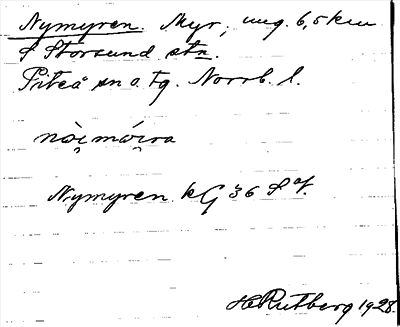 Nymyren. Myr, ung. 6,5 km
S Storsund stn.
Piteå sn o. tg. Norrb. l.
nòi̯ mói̯ra
Nymyren kG 36 S of.
H Rutberg 1928.